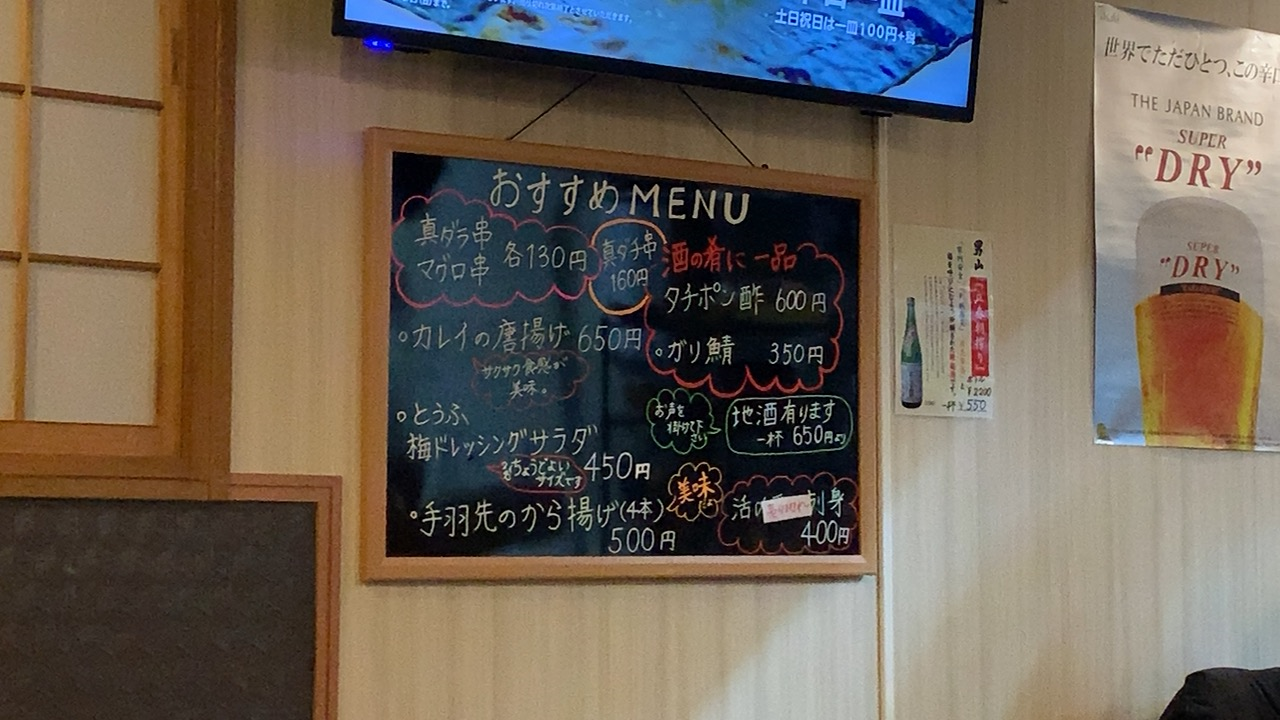 土日祝日は一皿100円+税
おすすめMENU
真ダラ串
マグロ串
各130円
真ダチ串
160円
酒の肴に一品
タチポン酢 600円
。ガリ鯖 350円
。カレイの唐揚げ 650円
サクサク食感が
美味。
。とうふ
梅ドレッシングサラダ
ちょうどよい
サイズです
450円
。手羽先のから揚げ(4本)
500円
お声を
掛け下
さい
地酒有ります
一杯 650円より
美味
活の 刺身
400円
男山
一杯 ¥550
世界でただひとつ、この辛口
THE JAPAN BRAND
SUPER
"DRY"
SUPER
"DRY"